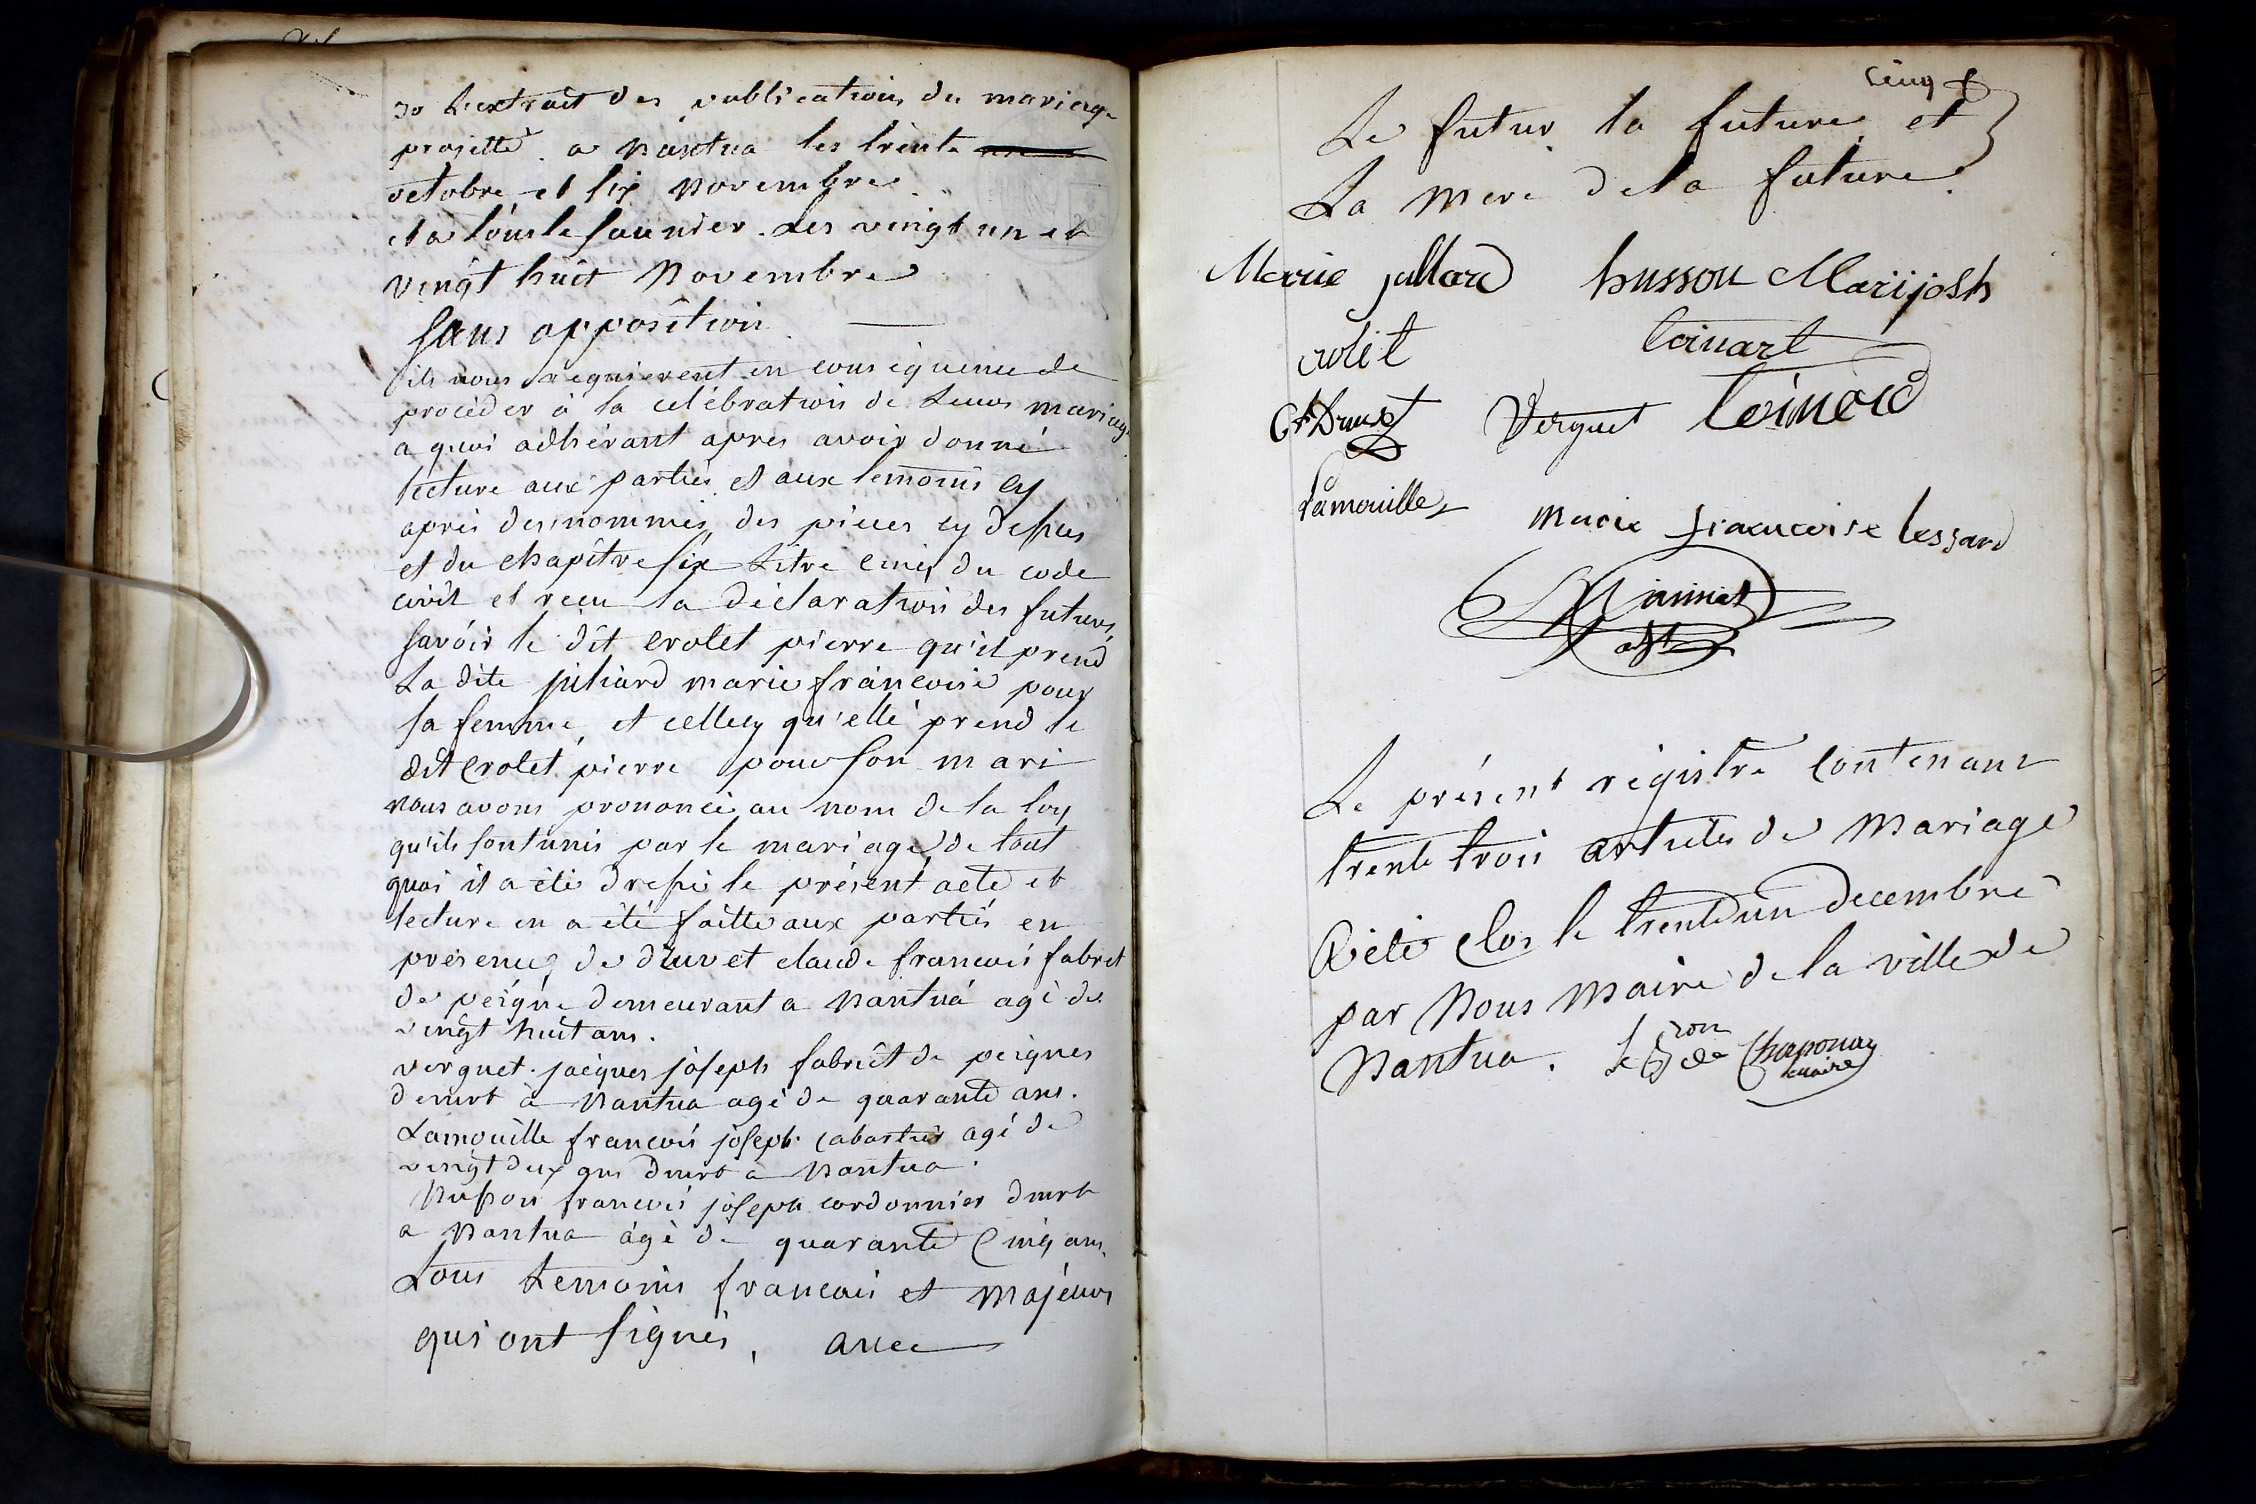 3º L'extrait des publications du mariage
projetté a Nantua les trente
octobre et six Novembre
et a lons le saunier. Les vingt un et
vingt huit Novembre
sans opposition.
ils nous requierent en conséquence de
procéder à la célébration de Leurs mariage
a quoi adhérant apres avoir donné
lecture aux parties et aux temoins cy
aprés desnommés, des pieces cy dessus
et du chapitre six titre cinq du code
civil et recu la déclaration des futurs,
savoir le dit crolet pierre qu'il prend
La dite juliard marie francoise pour
sa femme, et cellecy qu'elle prend le
dit Crolet pierre pour son mari
nous avons prononcé au nom de la loy
qu'ils sont unis par le mariage, de tout
quoi il a été dressé le présent acte et
lecture en a été faitte aux parties en
présence de druvet claude francois fabrct
de peigne demeurant a Nantua agé de
vingt huit ans.
verguet jacques joseph fabrict de peignes
demrt à Nantua agé de quarante ans.
Lamouille francois joseph cabartier agé de
vingt deux ans dmrt à Nantua.
husson francois joseph cordonnier dmrt
a Nantua âgé de quarante Cinq ans.
Tous temoins francais et majeurs
qui ont signés, avec
cinq
Le futur la future et
La mere de la future.
Marie jullard husson Marijosh
crolet Coinart
Cf Druvet Verguet Coinard
Lamouille
Marie francoise lessard
adjt
Le présent régistre Contenant
trente trois articles de Mariage
A été Clos le trente un decembre
par Nous Maire de la ville de
Nantua. Le Bron de Chaponay
maire